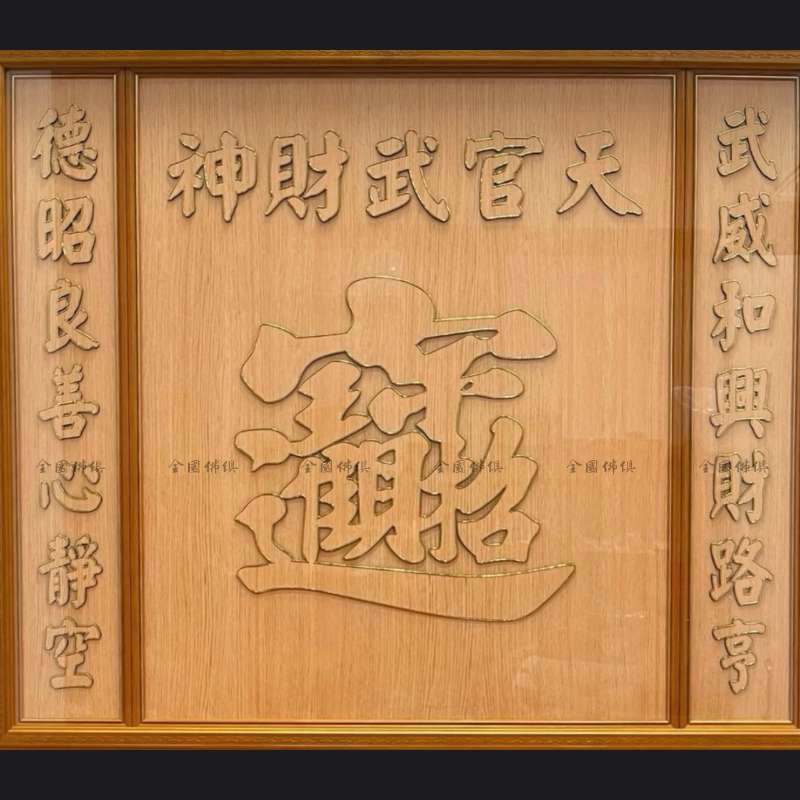 天官武財神
武威和興財路亨
招財進寶
德昭良善心靜空
金國佛俱 金國佛俱 金國佛俱 金國佛俱 金國佛俱